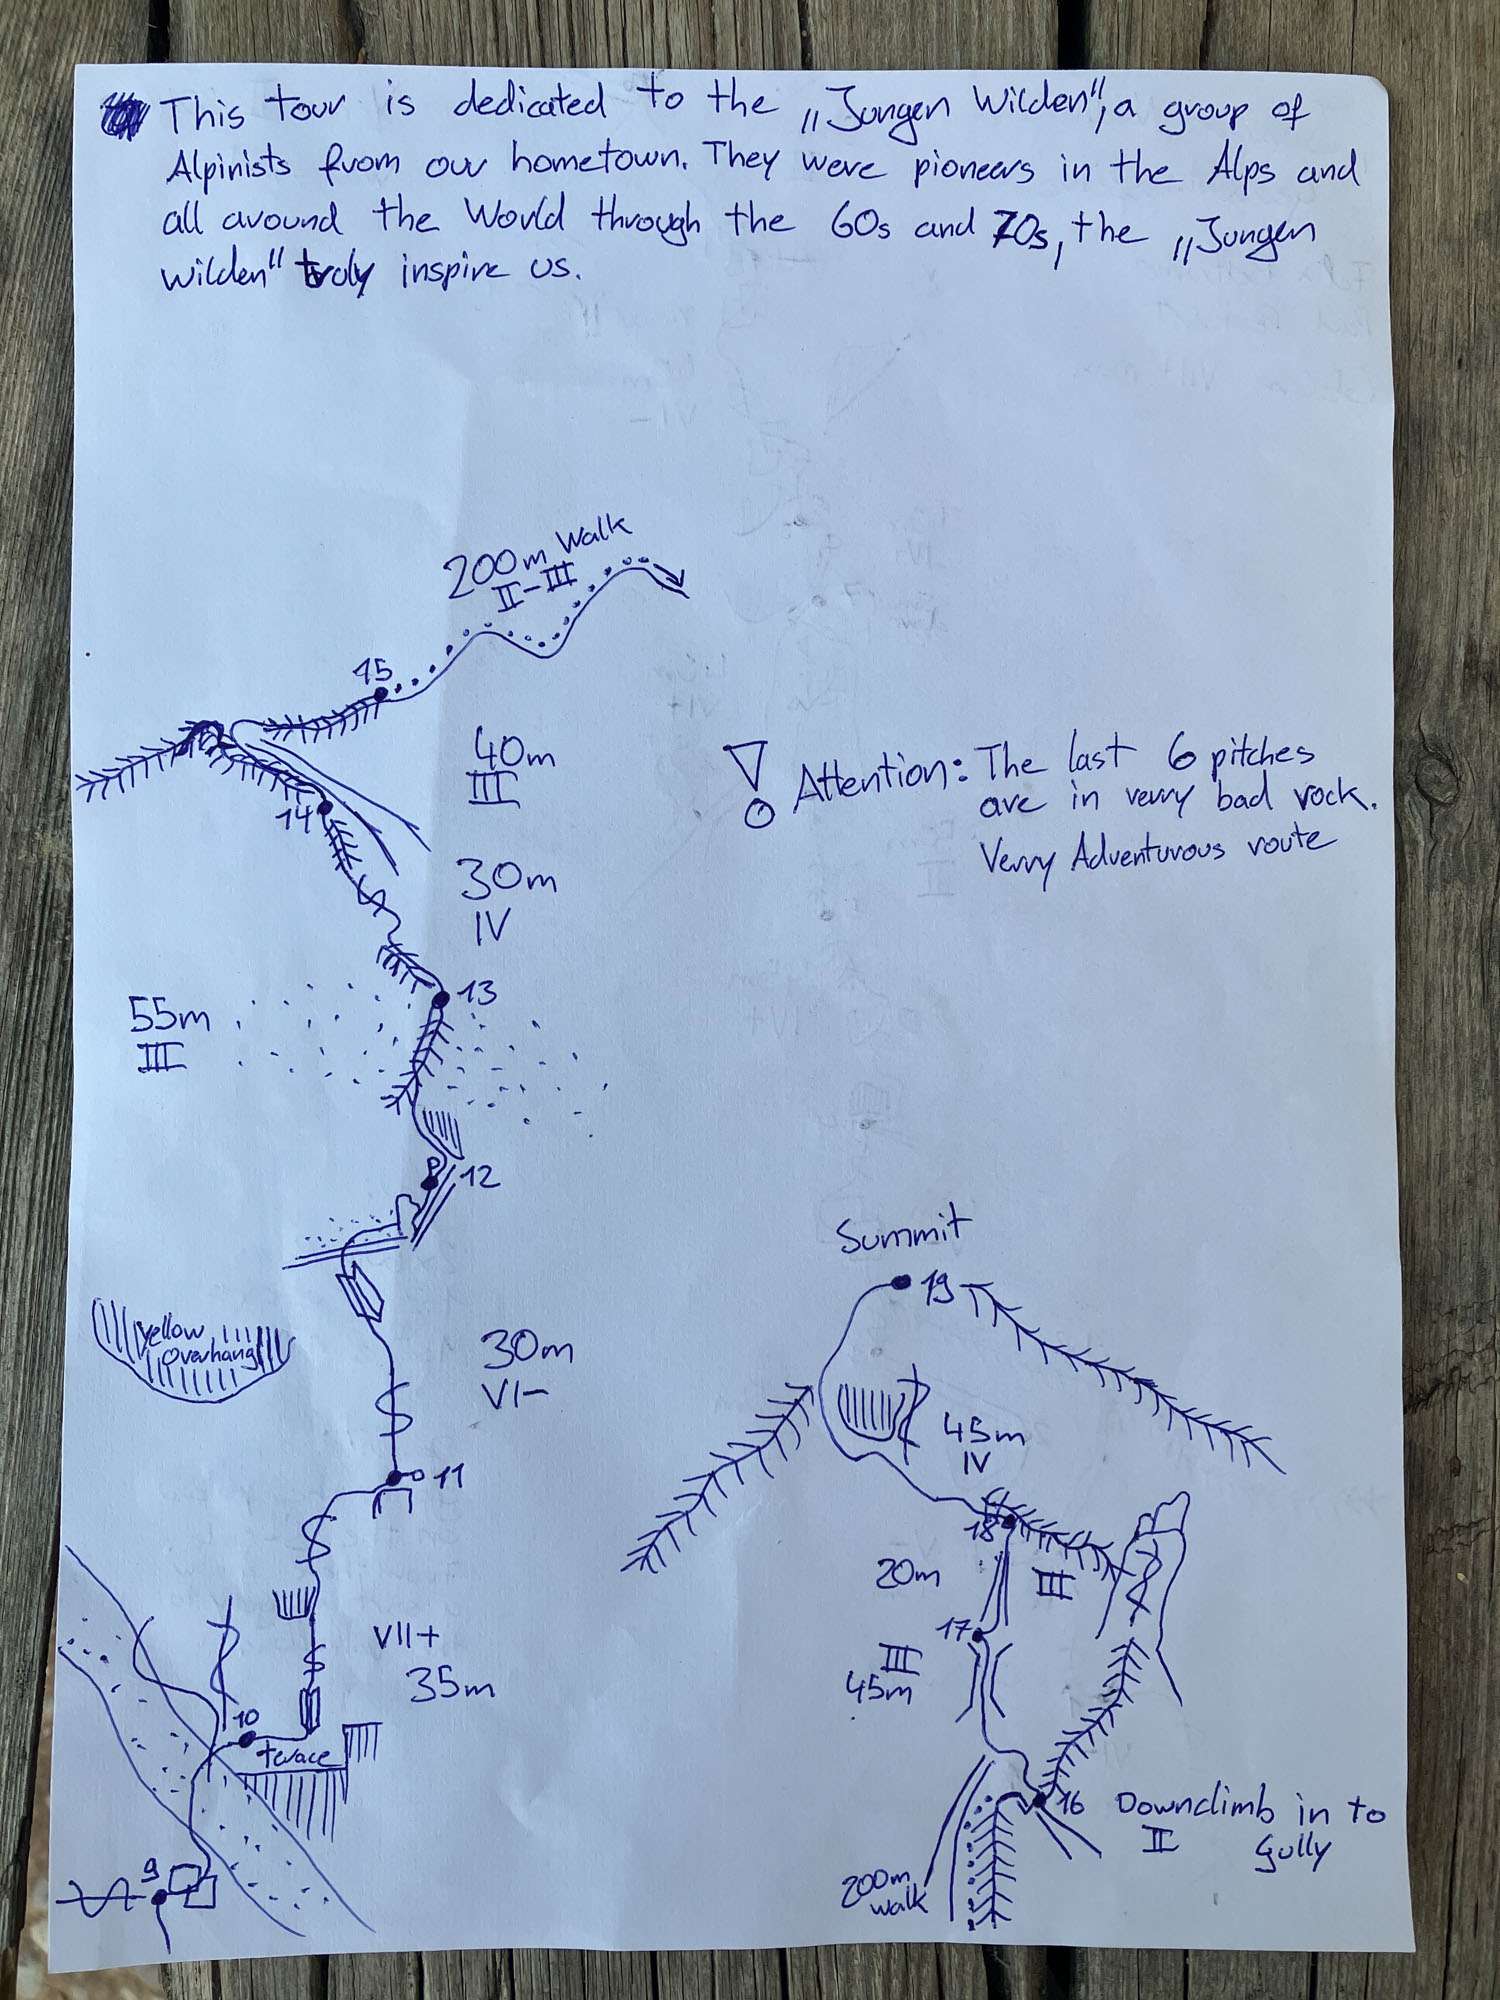 This tour is dedicated to the „Jungen Wilden", a group of
Alpinists from our hometown. They were pioneers in the Alps and
all around the World through the 60s and 70s, the „Jungen
Wilden" truly inspire us.
200m Walk
II-III
15
40m
III
14
30m
IV
13
55m
III
12
yellow
overhang
30m
VI-
11
VII+
35m
10
terace
9
Attention: The last 6 pitches
are in verry bad rock.
Verry Adventurous route
Summit
19
45m
IV
18
20m
III
17
III
45m
16 Downclimb in to
II gully
200m
walk